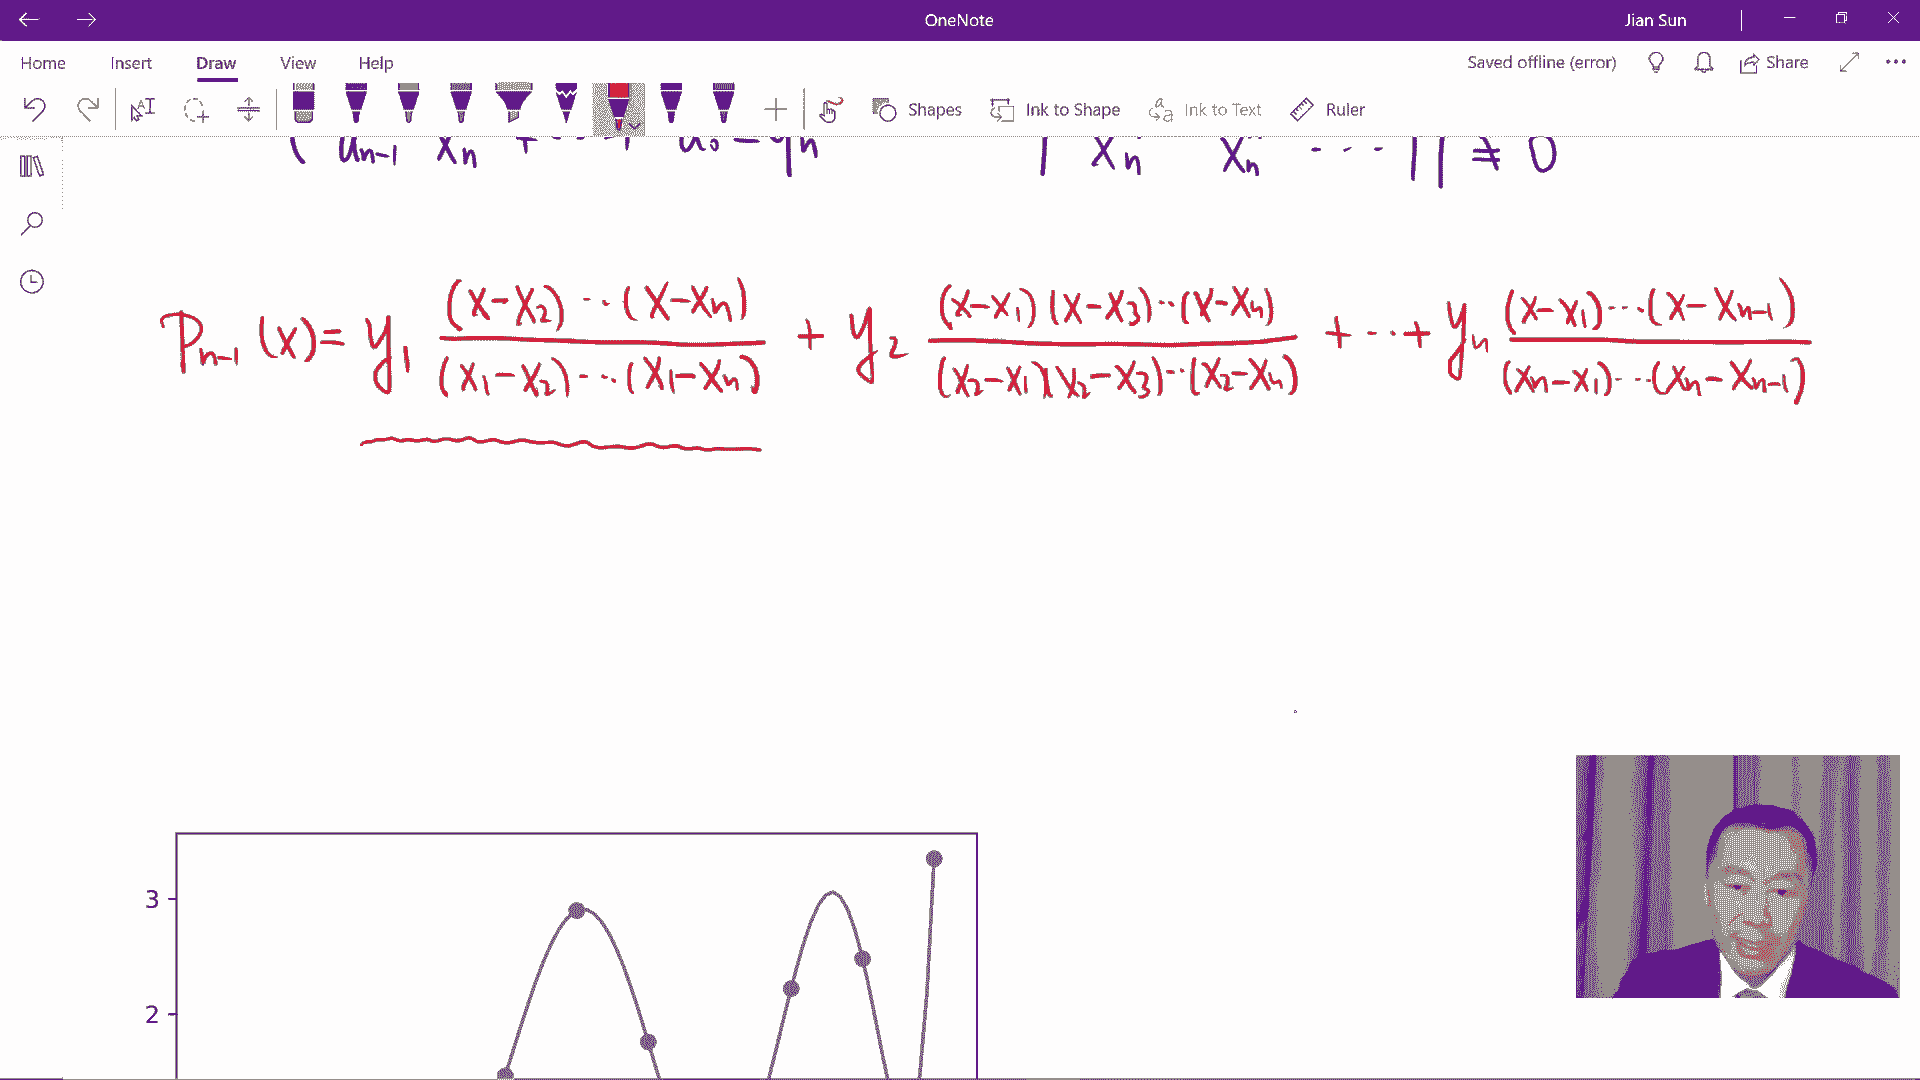 OneNote
Jian Sun
Home Insert Draw View Help
Saved offline (error) Share
Shapes Ink to Shape Ink to Text Ruler
a_{n-1} x_n + ... + a_0 = y_n
x_n x_n ... 1 | ≠ 0
P_{n-1}(x) = y_1 \frac{(x-x_2)···(x-x_n)}{(x_1-x_2)···(x_1-x_n)} + y_2 \frac{(x-x_1)(x-x_3)···(x-x_n)}{(x_2-x_1)(x_2-x_3)···(x_2-x_n)} + ··· + y_n \frac{(x-x_1)···(x-x_{n-1})}{(x_n-x_1)···(x_n-x_{n-1})}
3
2